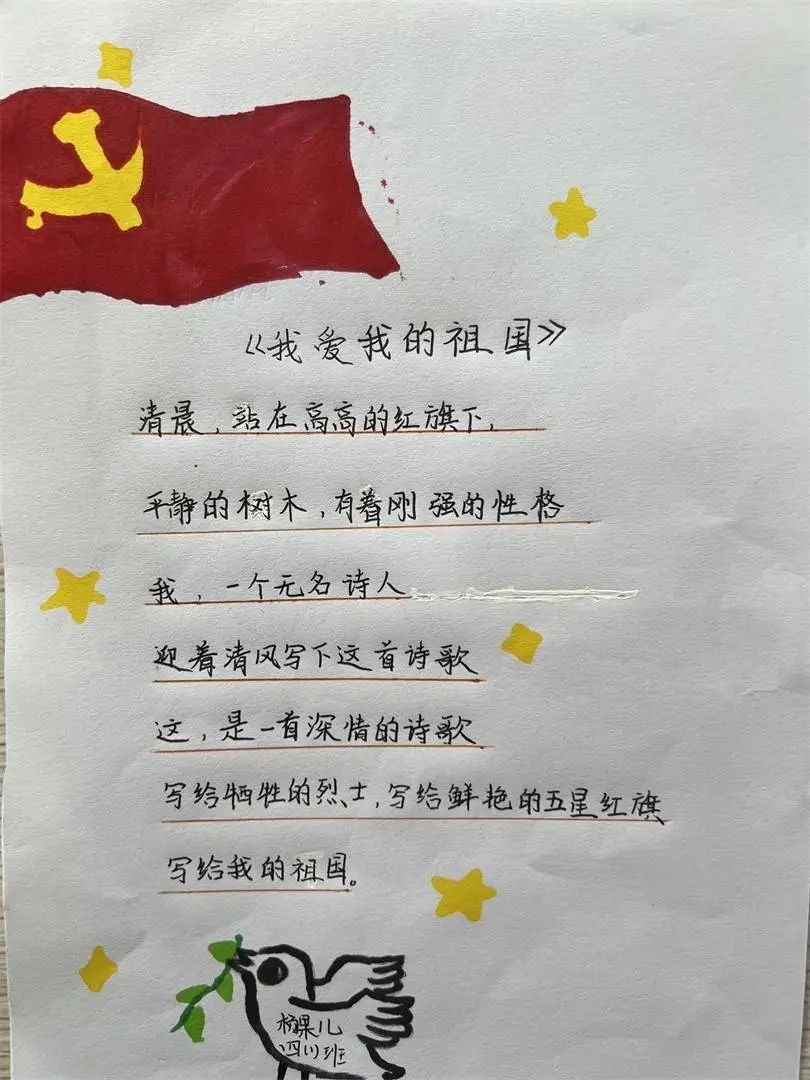 《我爱我的祖国》
清晨，站在高高的红旗下，
平静的树木，有着刚强的性格
我，一个无名诗人
迎着清风写下这首诗歌
这，是一首深情的诗歌
写给牺牲的烈士，写给鲜艳的五星红旗
写给我的祖国。
杨果儿
四川班